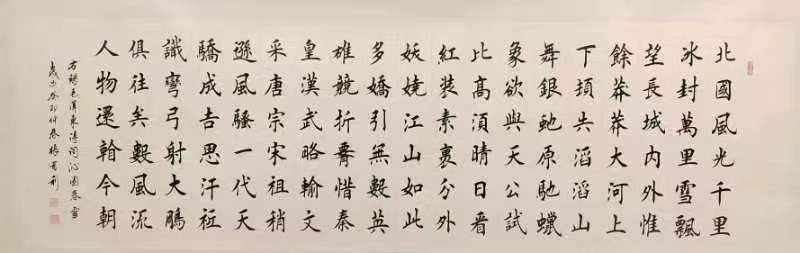 北國風光千里
冰封萬里雪飄
望長城內外惟
餘莽莽大河上
下頓失滔滔山
舞銀蛇原馳蠟
象欲與天公試
比高須晴日看
紅裝素裹分外
妖嬈江山如此
多嬌引無數英
雄競折腰惜秦
皇漢武略輸文
采唐宗宋祖稍
遜風騷一代天
驕成吉思汗祗
識彎弓射大鵰
俱往矣數風流
人物還看今朝
右錄毛澤東詩詞沁園春雪
歲次癸卯仲春